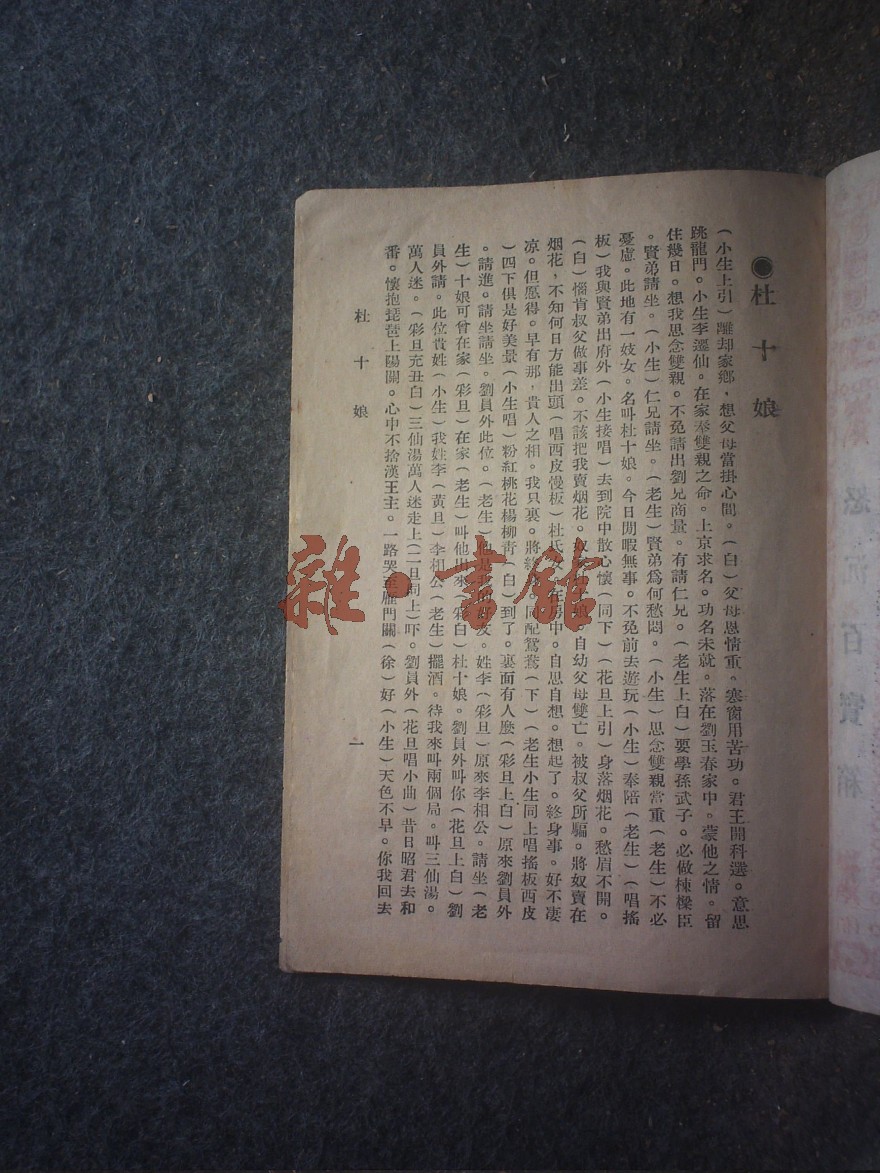 ◉杜十娘
(小生上引)離却家鄉，想父母當掛心間。(白)父母恩情重。寒窗用苦功。君王開科選。意思
跳龍門。小生李遷仙。在家奉雙親之命。上京求名。功名未就。落在劉玉春家中。蒙他之情。留
住幾日。想我思念雙親。不免請出劉兄商量。有請仁兄。(老生上白)要學孫武子。必做棟樑臣
。賢弟請坐。(小生)仁兄請坐。(老生)賢弟為何愁悶。(小生)思念雙親當重(老生)不必
憂慮。此地有一妓女。名叫杜十娘。今日閒暇無事。不免前去遊玩(小生)奉陪(老生)(唱搖
板)我與賢弟出府外(小生接唱)去到院中散心懷(同下)(花旦上引)身落烟花。愁眉不開。
(白)惱肯叔父做事差。不該把我賣烟花。奴家杜十娘。自幼父母雙亡。被叔父所騙。將奴賣在
烟花，不知何日方能出頭(唱西皮慢板)杜氏女在房中。自思自想。想起了。終身事。好不凄
凉。但愿得。早有那，貴人之相。我只裏。將終身同配鴛鴦(下)(老生小生同上唱搖板西皮
)四下俱是好美景(小生唱)粉紅桃花楊柳靑(白)到了。裏面有人麽(彩旦上白)原來劉員外
。請進。請坐請坐。劉員外此位。(老生)他是我的好友。姓李(彩旦)原來李相公。請坐(老
生)十娘可曾在家(彩旦)在家(老生)叫他出來(彩白)杜十娘。劉員外叫你(花旦上白)劉
員外請。此位貴姓(小生)我姓李(黃旦)李相公(老生)擺酒。待我來叫兩個局。叫三仙湯。
萬人迷。(彩旦充丑白)三仙湯萬人迷走上(二旦同上)吓。劉員外(花旦唱小曲)昔日昭君去和
番。懷抱琵琶上陽關。心中不捨漢王主。一路哭至雁門關(徐)好(小生)天色不早。你我回去
杜十娘
一
雜·書館
百寶箱